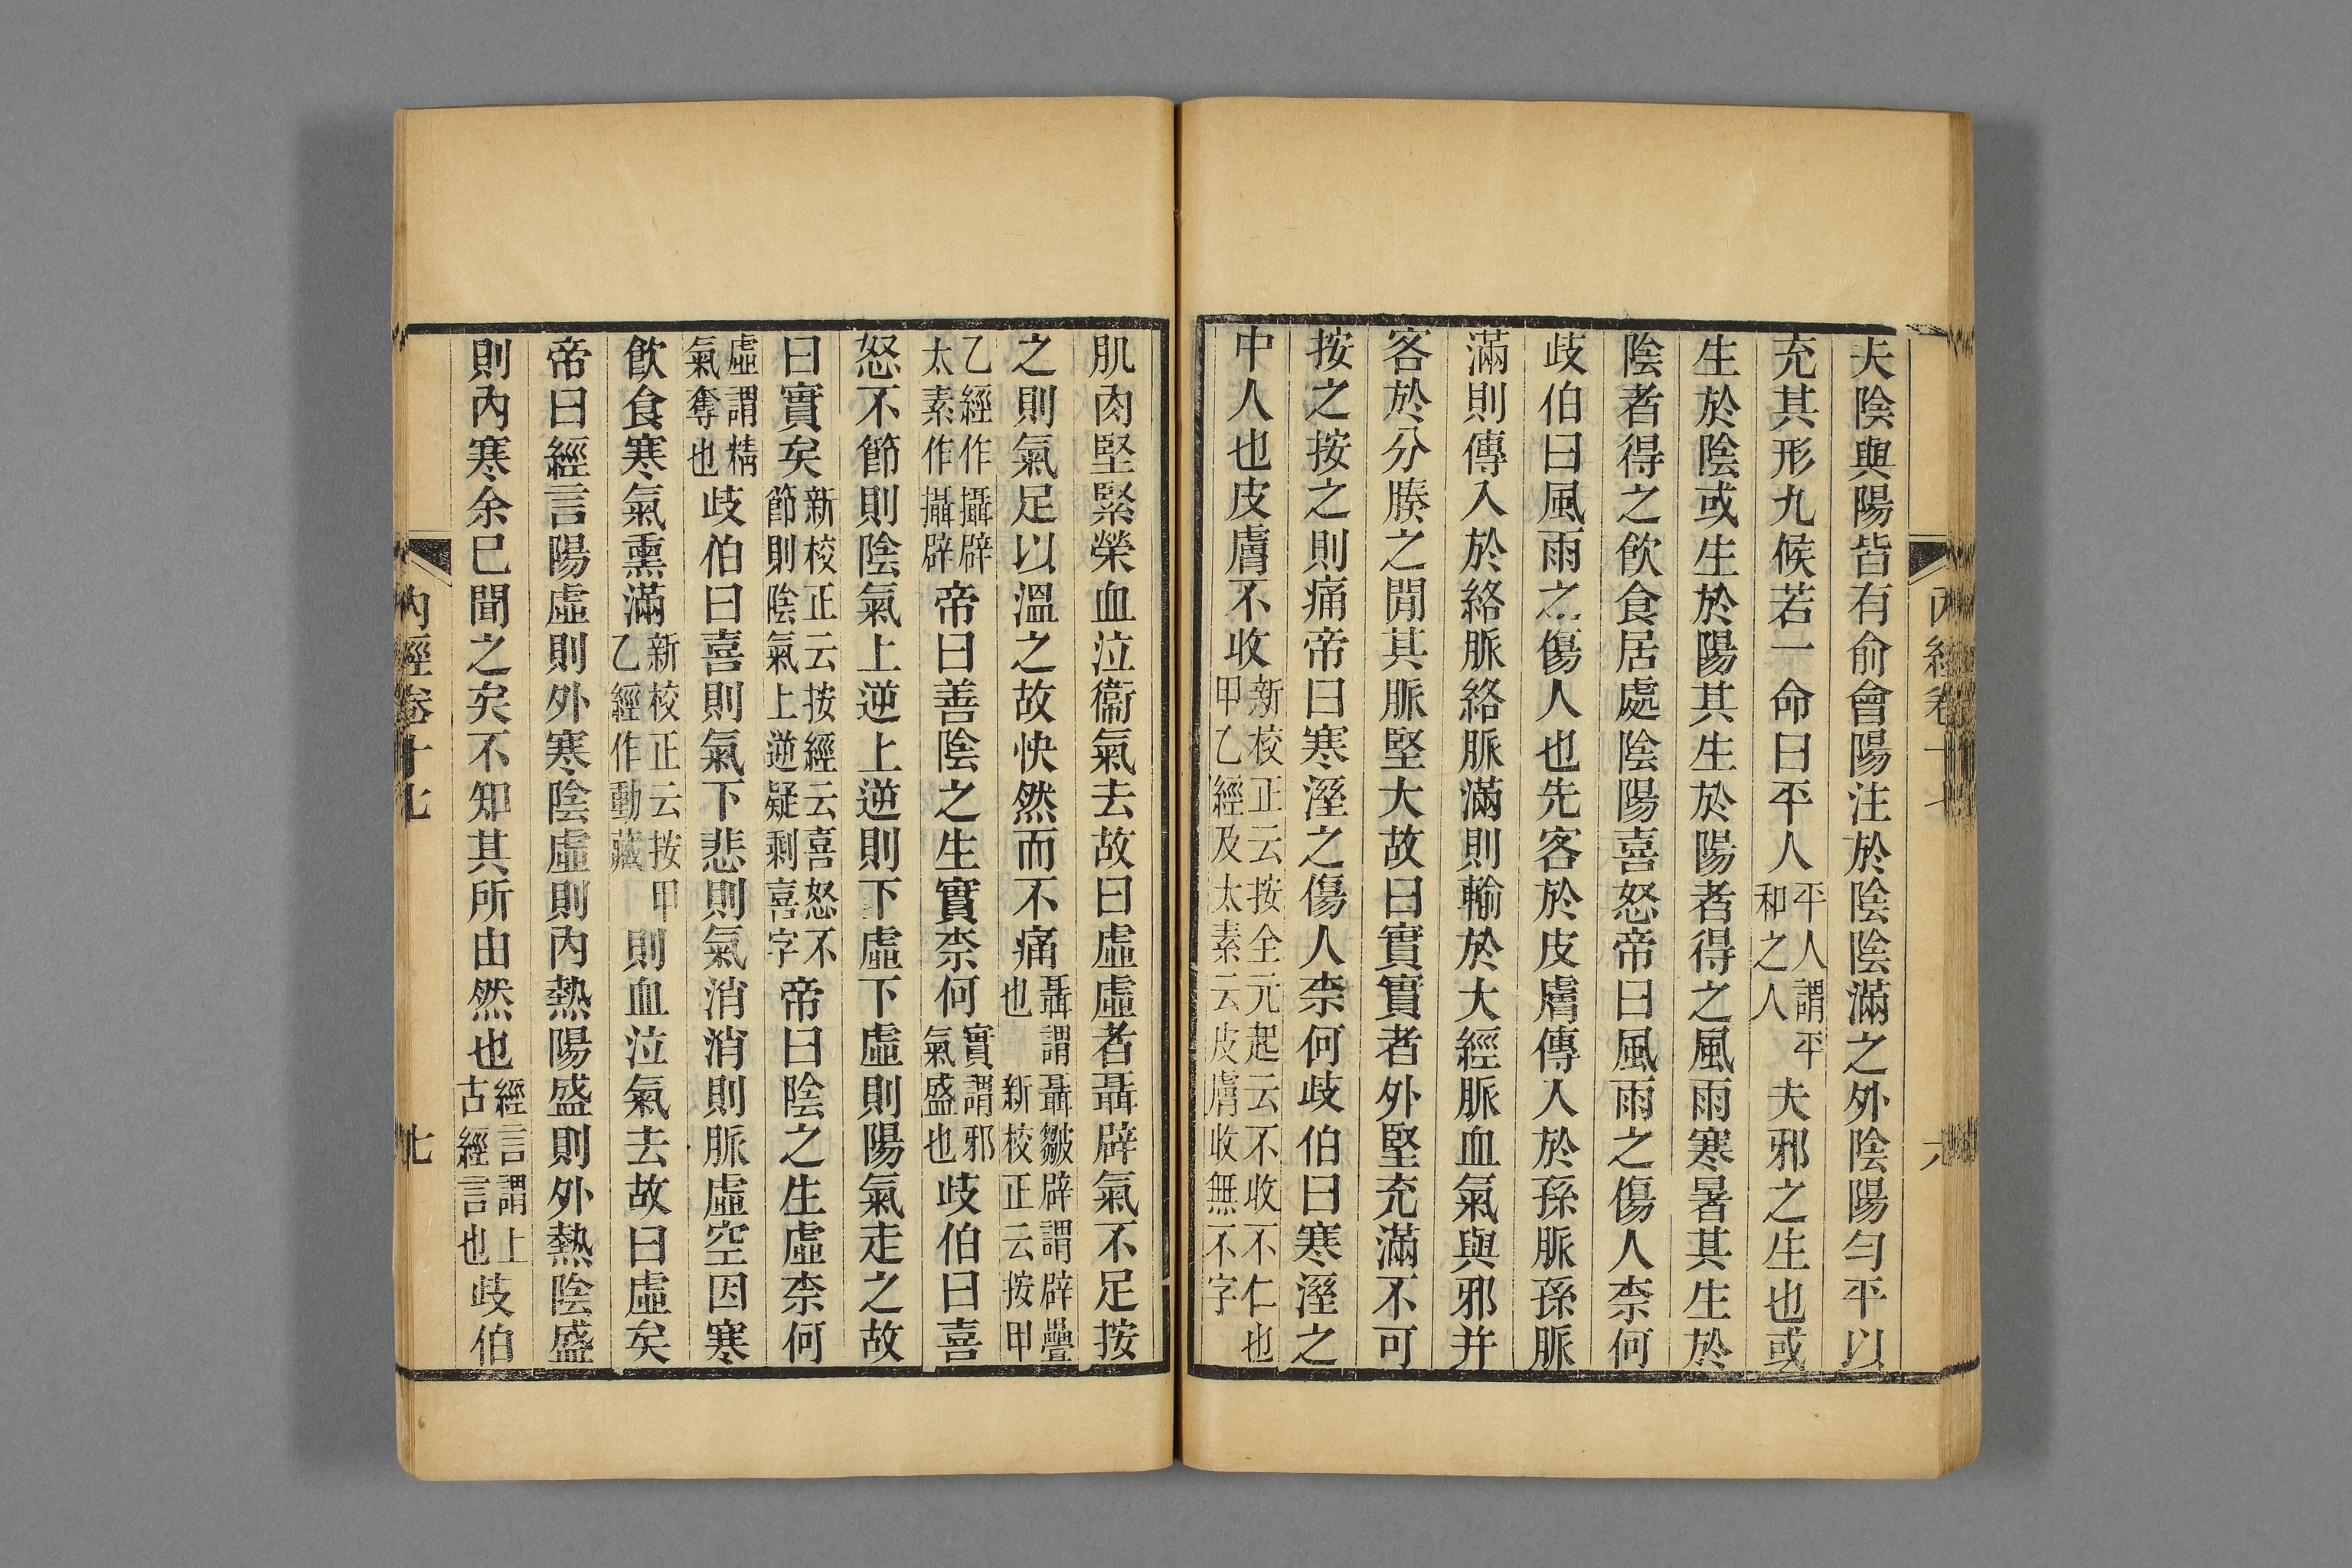 內經卷十七 六
夫陰與陽皆有俞會陽注於陰陰滿之外陰陽勻平以
充其形九候若一命曰平人平人謂平和之人夫邪之生也或
生於陰或生於陽其生於陽者得之風雨寒暑其生於
陰者得之飲食居處陰陽喜怒帝曰風雨之傷人柰何
歧伯曰風雨之傷人也先客於皮膚傳入於孫脈孫脈
滿則傳入於絡脈絡脈滿則輸於大經脈血氣與邪并
客於分腠之閒其脈堅大故曰實實者外堅充滿不可
按之按之則痛帝曰寒溼之傷人柰何歧伯曰寒溼之
中人也皮膚不收新校正云按全元起云不收不仁也甲乙經及太素云皮膚收無不字
肌肉堅緊榮血泣衞氣去故曰虛虛者聶辟氣不足按
之則氣足以溫之故快然而不痛聶謂聶皺辟謂辟疊也 新校正云按甲
乙經作攝辟太素作攝辟帝曰善陰之生實柰何實謂邪氣盛也歧伯曰喜
怒不節則陰氣上逆上逆則下虛下虛則陽氣走之故
曰實矣新校正云按經云喜怒不節則陰氣上逆疑剩喜字帝曰陰之生虛柰何
虛謂精氣奪也歧伯曰喜則氣下悲則氣消消則脈虛空因寒
飲食寒氣熏滿新校正云按甲乙經作動藏則血泣氣去故曰虛矣
帝曰經言陽虛則外寒陰虛則內熱陽盛則外熱陰盛
則內寒余已聞之矣不知其所由然也經言謂上古經言也歧伯
內經卷十七 七